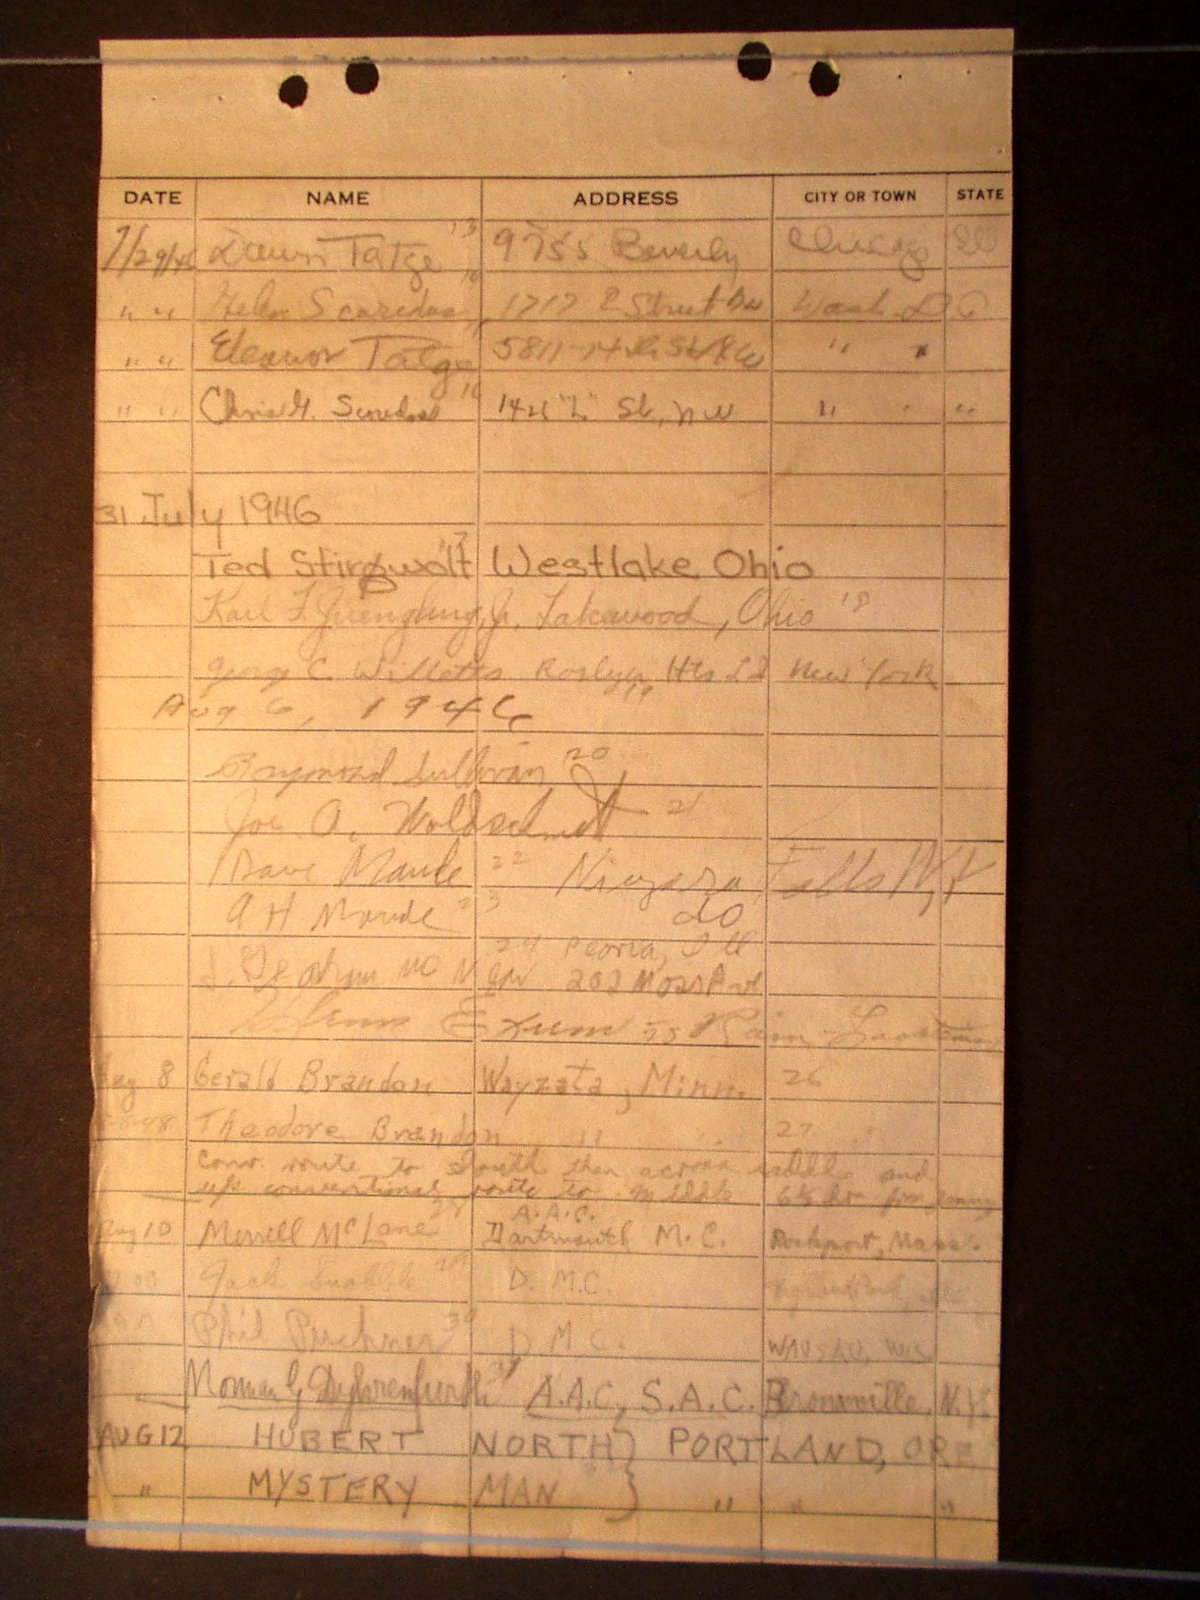 DATE NAME ADDRESS CITY OR TOWN STATE
7/29/46 Dawn Tatge 13 9755 Beverly Chicago Ill
" " Helen Scaredas 1717 R Street NW Wash D C
" " Eleanor Tatge 5811-14th St NW " "
" " Chris H. Scaredas 16 1421 "L" St, NW " " "
31 July 1946
Ted Stirgwolt 17 Westlake Ohio
Karl F. Juengling, Jr. Lakewood, Ohio 18
George C. Willetts Roslyn Hts L I New York
19
Aug 6, 1946
Raymond Sullivan 20
Joe A. Woldschmidt 21
Dave Maule 22 Niagara Falls N,Y
A H Maude 23 do
24 Peoria, Ill
Mc 202 Moss Ave
Glenn Exum 25
Aug 8 Gerald Brandon Wayzata, Minn. 26
Theodore Brandon " " 27 "
Conv. route to south then across saddle and
up conventional route to middle 6½ hrs from
A.A.C.
Aug 10 Merrell McLane 28 Dartmouth M. C. Rockport, Mass.
Jack 29 D. M.C. Highland Park,
Phil Puchner 30 D M C. WAUSAU, WIS
Norman G Dyhrenfurth 31 A.A.C, S.A.C. Bronxville, N.Y.
AUG 12 HUBERT NORTH } PORTLAND, ORE
" MYSTERY MAN } " " "